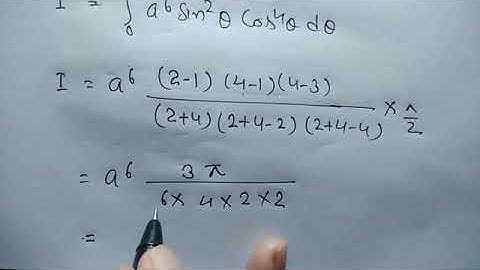 I = ∫₀ a⁶ Sin²θ Cos⁴θ dθ
I = a⁶ (2-1) (4-1)(4-3) / (2+4)(2+4-2)(2+4-4) × π/2
= a⁶ 3π / 6× 4×2×2
=